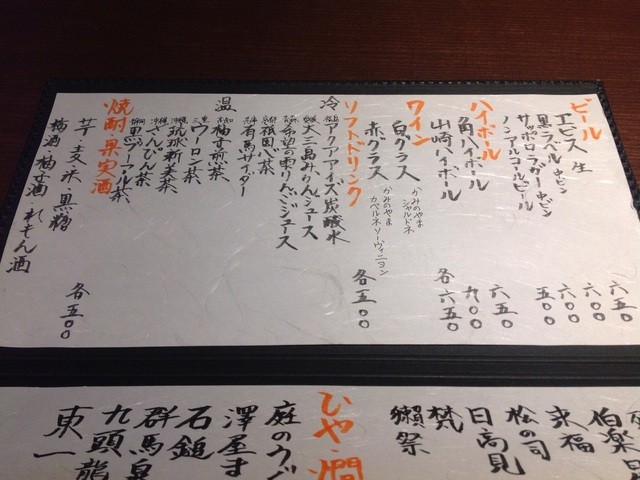 ビール
エビス 生 六五〇
黒ラベル 中ビン 六〇〇
サッポロラガー中ビン 六〇〇
ノンアルコールビール 五〇〇
ハイボール
角ハイボール 六五〇
山崎ハイボール 九〇〇
ワイン
白グラス かみのやま シャルドネ 各六五〇
赤グラス かみのやま カベルネソーヴィニヨン
ソフトドリンク 各五〇〇
冷
アクアアイズ炭酸水
大三島みかんジュース
希望の雫りんごジュース
祇園バ茶
有馬サイダー
温
柚子煎茶
ウーロン茶
琉球新麦茶
さんぴん茶
黒プーアル茶
焼酎・果実酒
芋・麦・米・黒糖 各五〇〇
梅酒・柚子酒・れもん酒
伯楽
来福
松の司
日高見
梵
獺祭
ひや・燗
庭のうぐ
澤屋ま
石鎚
群馬泉
九頭龍
東一